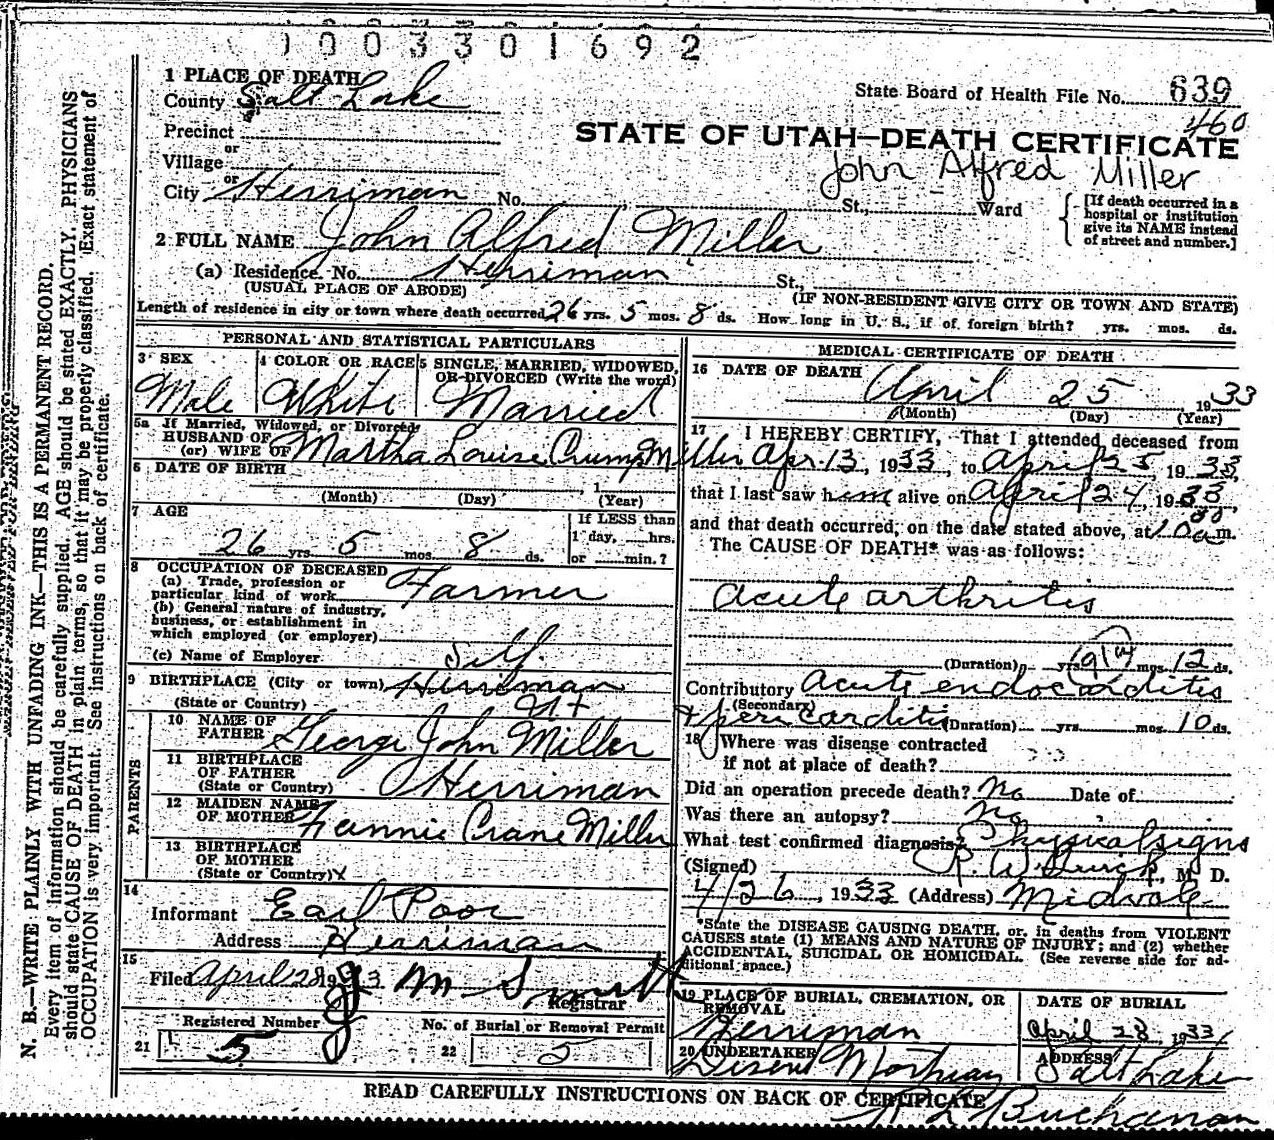 1003301692
1 PLACE OF DEATH
County Salt Lake
State Board of Health File No. 639
460
Precinct
or
Village
or
City Herriman No. St., Ward
STATE OF UTAH—DEATH CERTIFICATE
John Alfred Miller
{ [If death occurred in a
hospital or institution
give its NAME instead
of street and number.]
2 FULL NAME John Alfred Miller
(a) Residence. No. Herriman St.,
(USUAL PLACE OF ABODE) (IF NON-RESIDENT GIVE CITY OR TOWN AND STATE)
Length of residence in city or town where death occurred 26 yrs. 5 mos. 8 ds. How long in U. S., if of foreign birth? yrs. mos. ds.
PERSONAL AND STATISTICAL PARTICULARS
3 SEX
Male
4 COLOR OR RACE
White
5 SINGLE, MARRIED, WIDOWED,
OR DIVORCED (Write the word)
Married
5a If Married, Widowed, or Divorced
HUSBAND OF
(or) WIFE OF Martha Louise Crump Miller
6 DATE OF BIRTH
, 1
(Month) (Day) (Year)
7 AGE
26 yrs. 5 mos. 8 ds.
If LESS than
1 day, hrs.
or min.?
8 OCCUPATION OF DECEASED
(a) Trade, profession or
particular kind of work Farmer
(b) General nature of industry,
business, or establishment in
which employed (or employer)
(c) Name of Employer Self.
9 BIRTHPLACE (City or town) Herriman
(State or Country) Ut
PARENTS
10 NAME OF
FATHER George John Miller
11 BIRTHPLACE
OF FATHER
(State or Country) Herriman
12 MAIDEN NAME
OF MOTHER Fannie Crane Miller
13 BIRTHPLACE
OF MOTHER
(State or Country)
14
Informant Earl Poor
Address Herriman
15
Filed April 28 1933 M Smith
Registrar
Registered Number
21 5
No. of Burial or Removal Permit
22 5
MEDICAL CERTIFICATE OF DEATH
16 DATE OF DEATH
April 25 1933
(Month) (Day) (Year)
17 I HEREBY CERTIFY, That I attended deceased from
Apr. 13, 1933, to April 25, 1933,
that I last saw him alive on April 24, 1933,
and that death occurred, on the date stated above, at a m.
The CAUSE OF DEATH* was as follows:
acute arthritis
(Duration) yrs. mos. 12 ds.
Contributory acute endocarditis
(Secondary)
& pericarditis (Duration) yrs. mos. 10 ds.
18 Where was disease contracted
if not at place of death?
Did an operation precede death? No Date of
Was there an autopsy? No
What test confirmed diagnosis? Physical signs
(Signed) R. W. , M. D.
4/26, 1933 (Address) Midvale
*State the DISEASE CAUSING DEATH, or, in deaths from VIOLENT
CAUSES state (1) MEANS AND NATURE OF INJURY; and (2) whether
ACCIDENTAL, SUICIDAL OR HOMICIDAL. (See reverse side for ad-
ditional space.)
19 PLACE OF BURIAL, CREMATION, OR
REMOVAL
Herriman
DATE OF BURIAL
April 28 1933
20 UNDERTAKER
Deseret Mortuary
ADDRESS
Salt Lake
READ CAREFULLY INSTRUCTIONS ON BACK OF CERTIFICATE
Buchanan
N. B.—WRITE PLAINLY WITH UNFADING INK—THIS IS A PERMANENT RECORD.
Every item of information should be carefully supplied. AGE should be stated EXACTLY. PHYSICIANS
should state CAUSE OF DEATH in plain terms, so that it may be properly classified. Exact statement of
OCCUPATION is very important. See instructions on back of certificate.